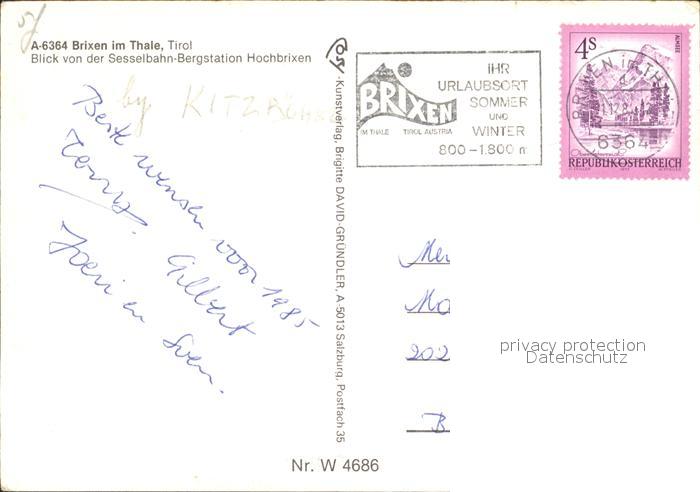 A-6364 Brixen im Thale, Tirol
Blick von der Sesselbahn-Bergstation Hochbrixen
by KITZBÜHEL
Beste wensen voor 1985
Gilbert
Joeri en Sven.
-Kunstverlag, Brigitte DAVID-GRÜNDLER, A-5013 Salzburg, Postfach 35
Nr. W 4686
BRIXEN
IM THALE TIROL AUSTRIA
IHR
URLAUBSORT
SOMMER
UND
WINTER
800-1.800 m
4S
ALMSEE
REPUBLIK ÖSTERREICH
BRIXEN im TH
6364
Me
Mo
202
B
privacy protection
Datenschutz